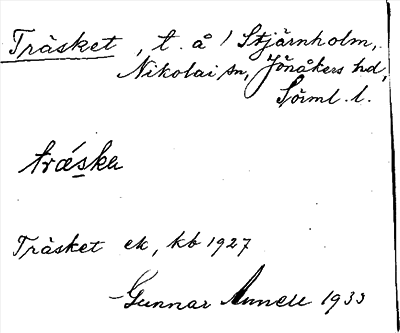 Träsket, t. å / Stjärnholm,
Nikolai sn, Jönåkers hd,
Sörml. l.
träska
Träsket ek, kb 1927
Gunnar 1933